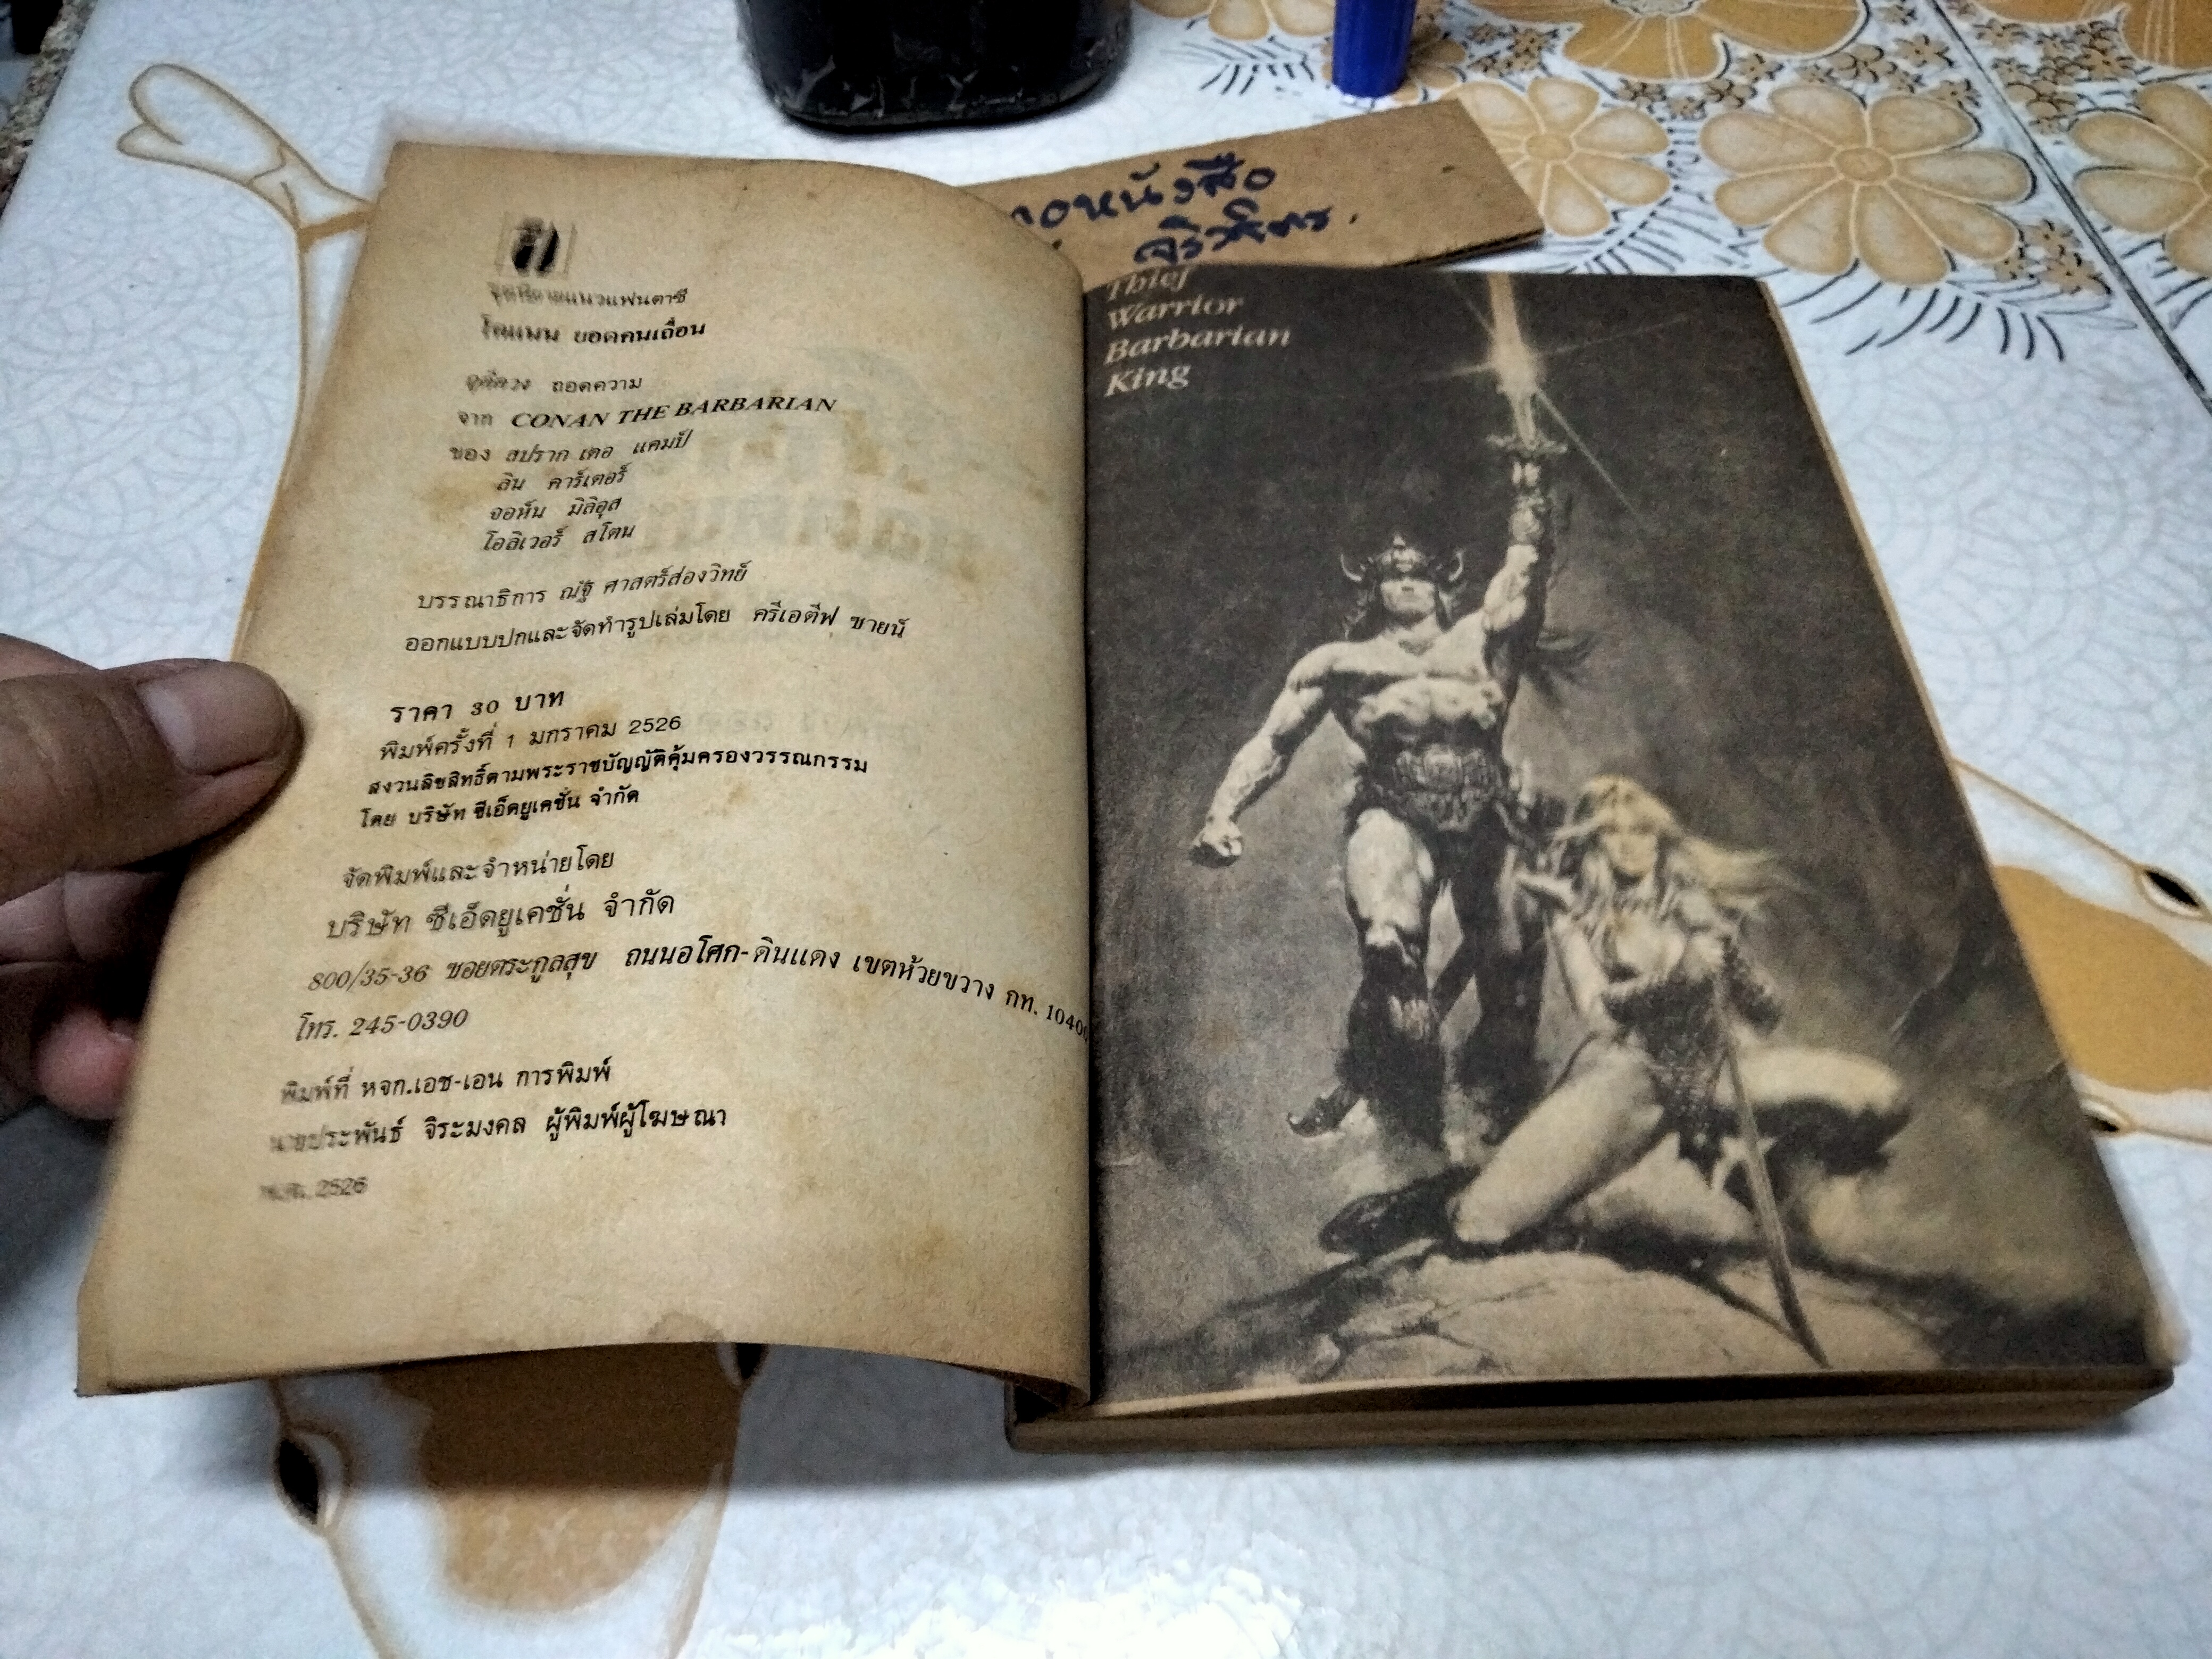 แนวแฟนตาซี
โคแนน ยอดคนเถื่อน
ถอดความ
จาก CONAN THE BARBARIAN
ของ สปราก เดอ แคมป์
ลิน คาร์เตอร์
จอห์น มิลิอุส
โอลิเวอร์ สโตน
บรรณาธิการ ณัฐ ศาสตร์ส่องวิทย์
ออกแบบปกและจัดทำรูปเล่มโดย ครีเอตีฟ ซายน์
ราคา 30 บาท
พิมพ์ครั้งที่ 1 มกราคม 2526
สงวนลิขสิทธิ์ตามพระราชบัญญัติคุ้มครองวรรณกรรม
โดย บริษัท ซีเอ็ดยูเคชั่น จำกัด
จัดพิมพ์และจำหน่ายโดย
บริษัท ซีเอ็ดยูเคชั่น จำกัด
800/35-36 ซอยตระกูลสุข ถนนอโศก-ดินแดง เขตห้วยขวาง กท. 10400
โทร. 245-0390
พิมพ์ที่ หจก.เอช-เอน การพิมพ์
นายประพันธ์ จิระมงคล ผู้พิมพ์ผู้โฆษณา
พ.ศ. 2526
Thief
Warrior
Barbarian
King
หนังสือ